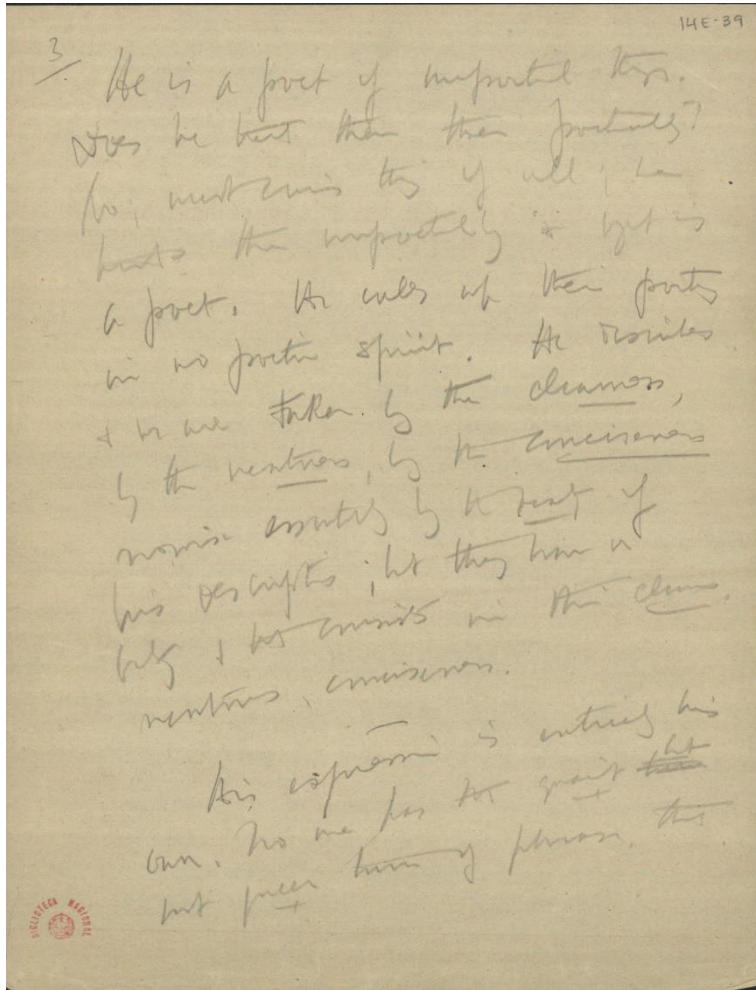 14E-39
3
He is a poet of unpoetical things.
Does he treat them then poetically?
No, most curious thing of all; he
treats them unpoetically & yet is
a poet. He calls up their poetry
in no poetic spirit. He describes
& we are taken by the clearness,
by the neatness, by the conciseness
essentially by the of
his descriptions; but they have a
beauty & that consists in their clearness,
neatness, conciseness.
His expression is entirely his
own. No one has that quaint but
not queer turn of phrase, that
BIBLIOTECA NACIONAL